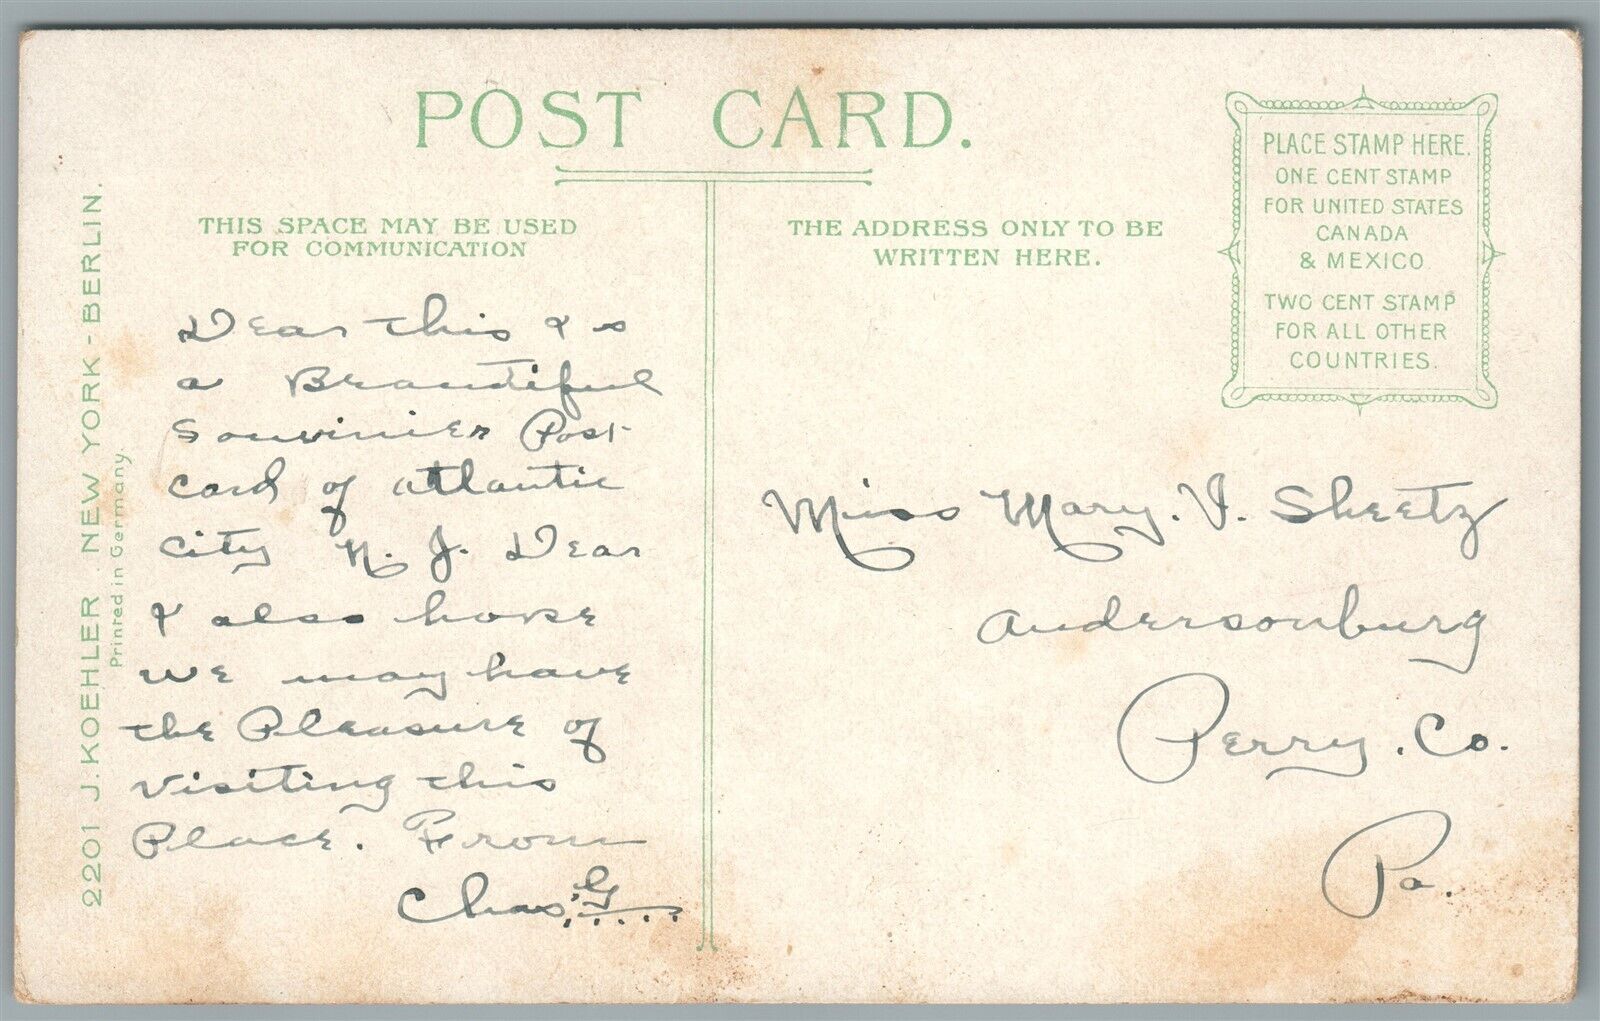 POST CARD.
THIS SPACE MAY BE USED
FOR COMMUNICATION
THE ADDRESS ONLY TO BE
WRITTEN HERE.
PLACE STAMP HERE.
ONE CENT STAMP
FOR UNITED STATES
CANADA
& MEXICO
TWO CENT STAMP
FOR ALL OTHER
COUNTRIES.
2201 J. KOEHLER. NEW YORK - BERLIN.
Printed in Germany.
Dear this is
a Beautiful
Souvinier Post
Card of atlantic
City N. J. Dear
I also hope
we may have
the Pleasure of
Visiting this
Place. From
Chas. G
Miss Mary. V. Sheetz
Andersonburg
Perry. Co.
Pa.